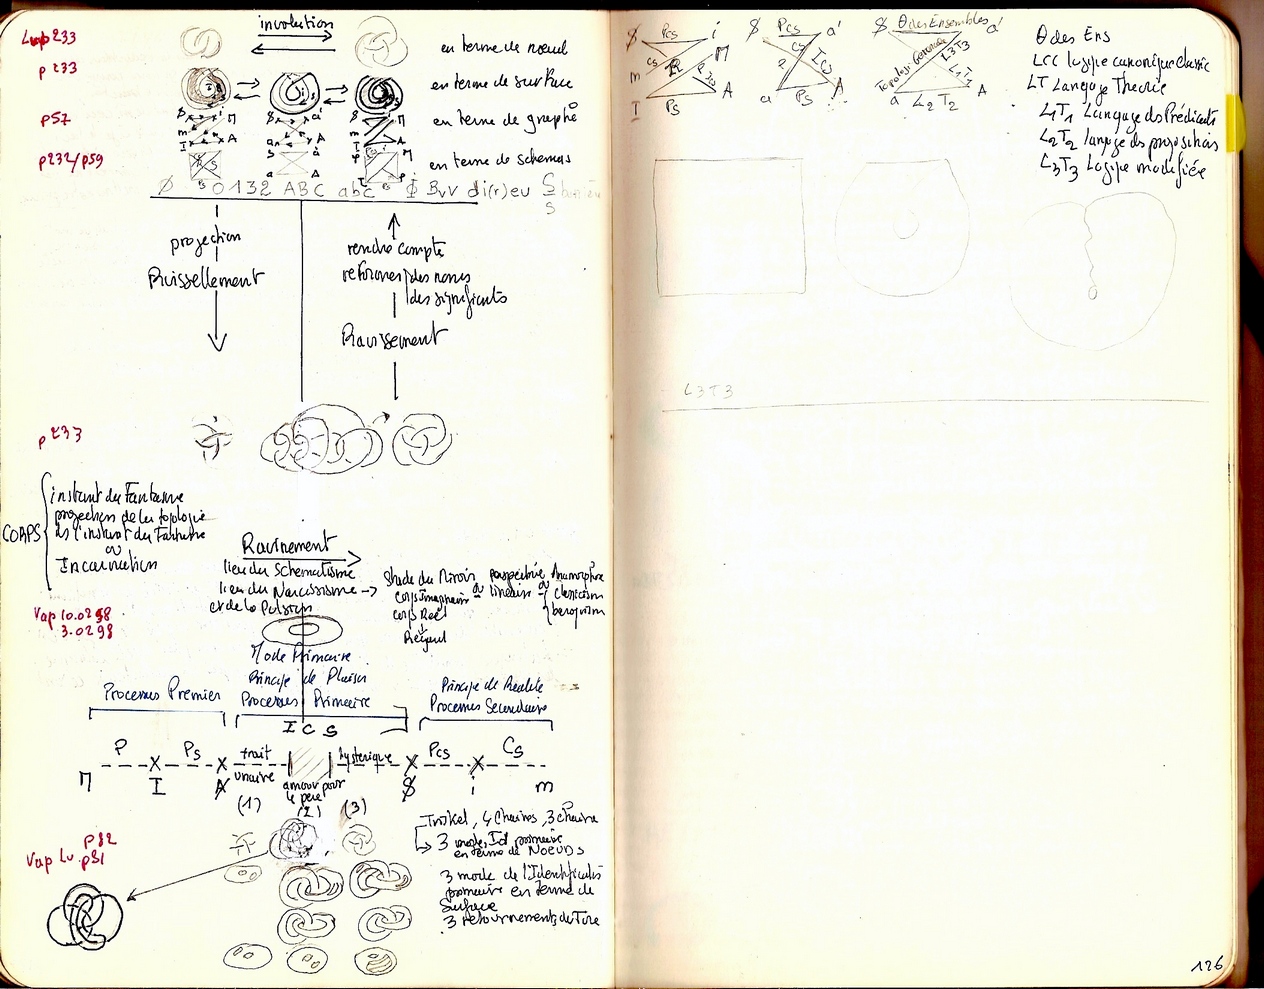 involution
Lup 233
en terme de nœud
p 233
en terme de surface
p57
en terme de graphe
p232/p59
en terme de schemas
0132 ABC abc Φ
projection
Ruissellement
rendre compte
des noms
des significants
Ravissement
p 233
CORPS
instant du Fantasme
projection de la topologie
ds l'instant du Fantasme
ou
Incarnation
Ravinement
lieu du Schematisme
lieu du Narcissisme →
et de la Pulsion
Stade du Miroir ou perspective ou Anamorphose
corps Imaginaire linéaire classicism
corps Réel baroquism
Regard
Vap 10.02 98
3.02 98
Mode Primaire
Principe de Plaisir
Processus Primaire
Processus Premier
Principe de Réalité
Processus Secondaire
I C S
P Ps trait unaire hysterique Pcs Cs
M I A amour pour le père $ i m
(1) (2) (3)
Triskel, 4 Chaines, 3 chaine
3 mode Id primaire
en terme de NOEUDS
3 mode de l'Identificatio
primaire en terme de
Surface
3 retournements du Tore
p82
Vap Lu p81
$ Pcs i
m Cs R M
I Ps A
$ Pcs a'
Cs Ics
a Ps A
$ θ des Ensembles a'
Topologie Generale L3T3 L1T1
a L2 T2 A
θ des Ens
LCC logique canonique classic
LT Langage Theorie
L1T1 Langage ds Prédicats
L2T2 langage ds propositions
L3T3 Logique modifiée
L3T3
126